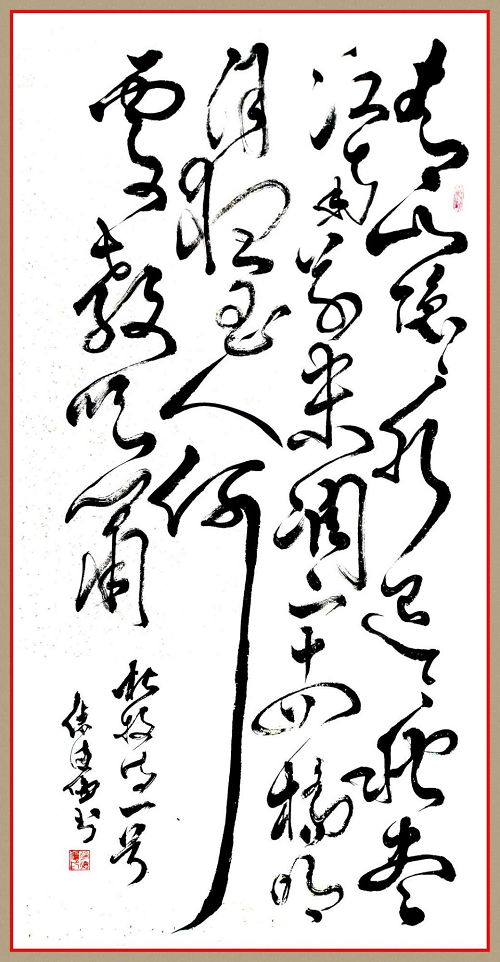 青山隱々水迢々秋盡
江南草未凋二十四橋明
月夜玉人何
處教吹簫
杜牧詩一首
書